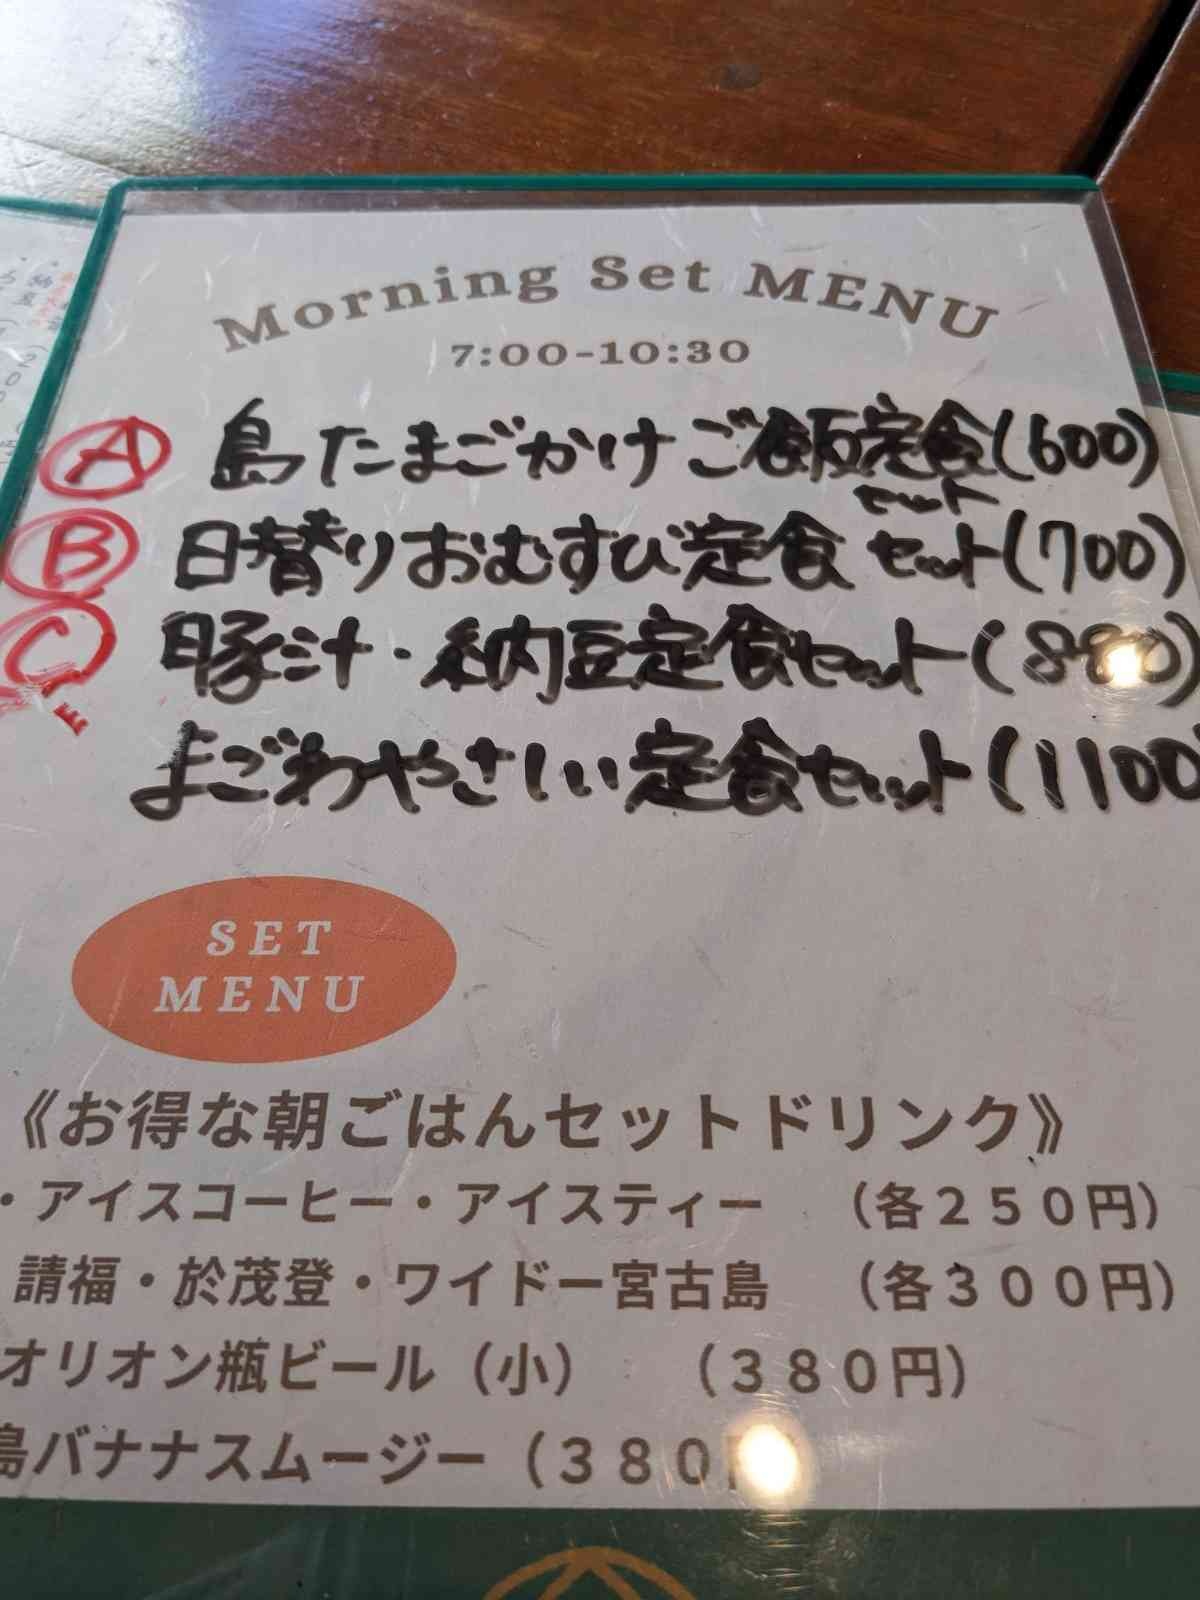 Morning Set MENU
7:00-10:30
A 島たまごかけご飯定食(600)
セット
B 日替りおむすび定食セット(700)
C 豚汁・納豆定食セット(880)
まごわやさしい定食セット(1100
SET
MENU
《お得な朝ごはんセットドリンク》
・アイスコーヒー・アイスティー (各250円)
請福・於茂登・ワイドー宮古島 (各300円)
オリオン瓶ビール(小) (380円)
島バナナスムージー(380